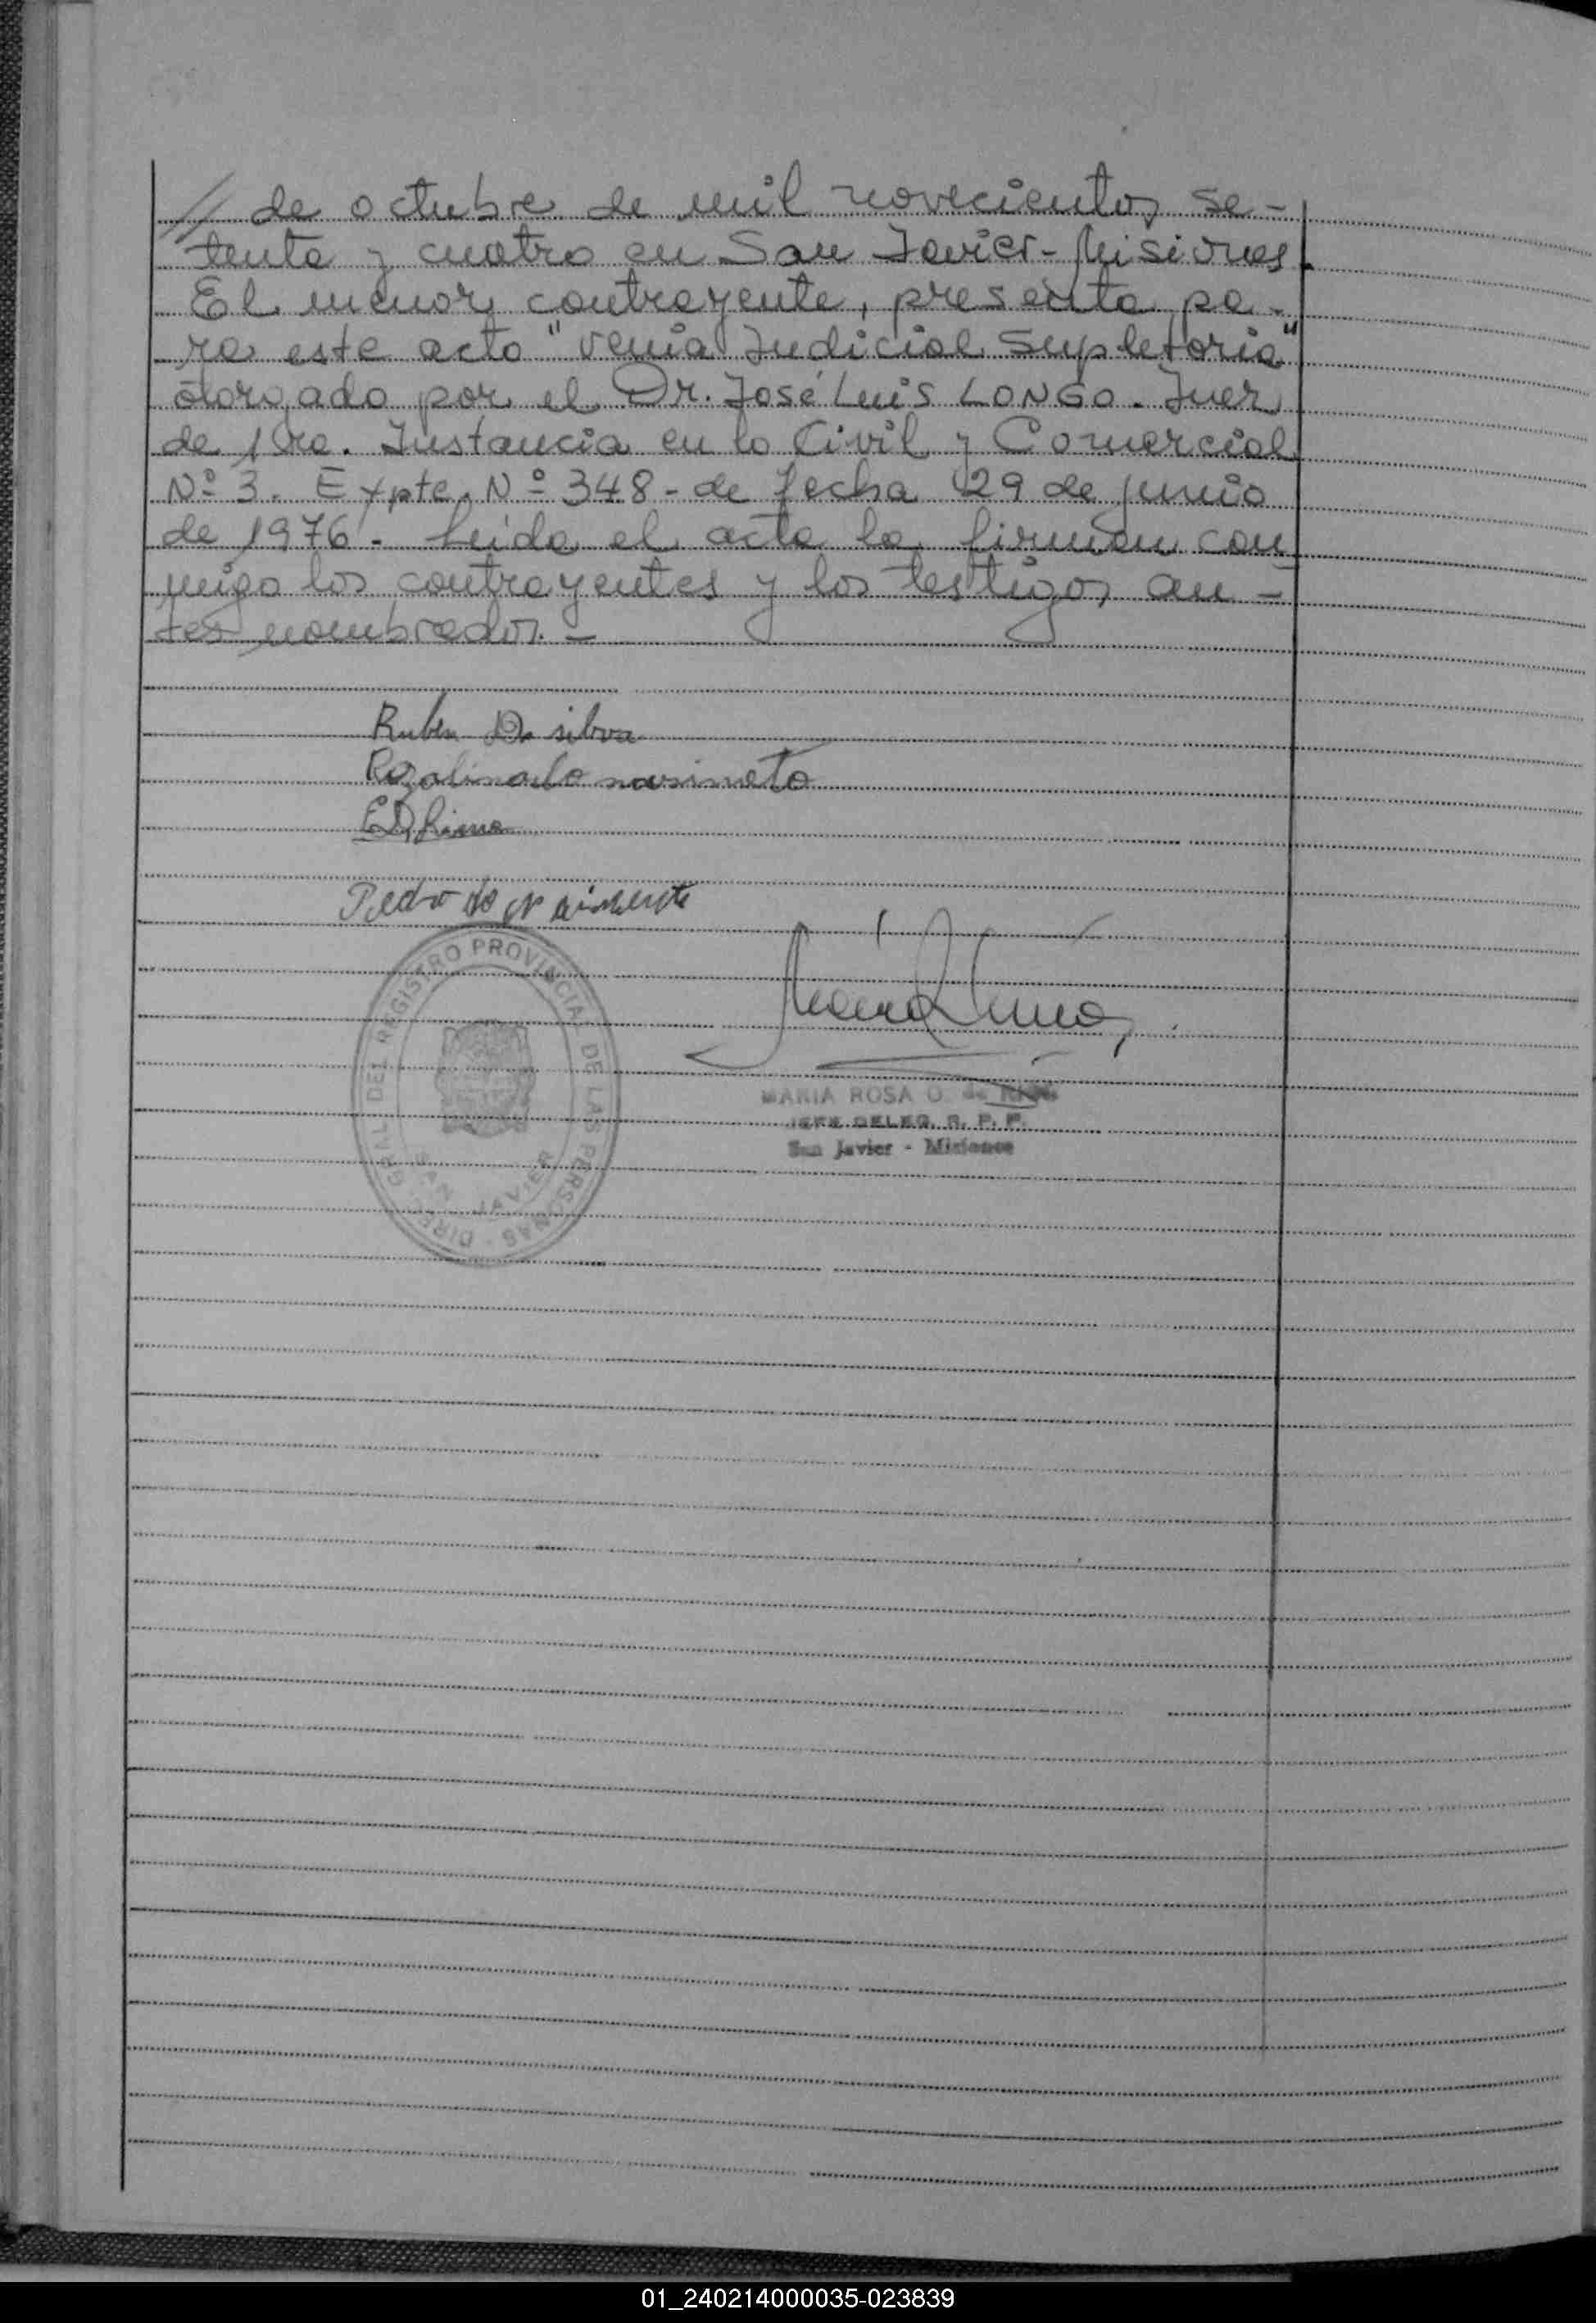 // de octubre de mil novecientos se-
tenta y cuatro en San Javier - Misiones
El menor contrayente, presenta pa-
ra este acto "Venia Judicial Supletoria"
otorgado por el Dr. José Luis LONGO. Juez
de 1ra. Instancia en lo Civil y Comercial
Nº 3. Expte. Nº 348 - de fecha 29 de junio
de 1976 - Leida el acta la firman con
migo los contrayentes y los testigos an-
tes nombrados. -
Ruben Da silva
Rozalina do nasimeto
Pedro do
DIREC. GRAL. DEL REGISTRO PROVINCIAL DE LAS PERSONAS
SAN JAVIER
MARIA ROSA O. de
JEFE DELEG. R. P. P.
San Javier - Misiones
01_240214000035-023839